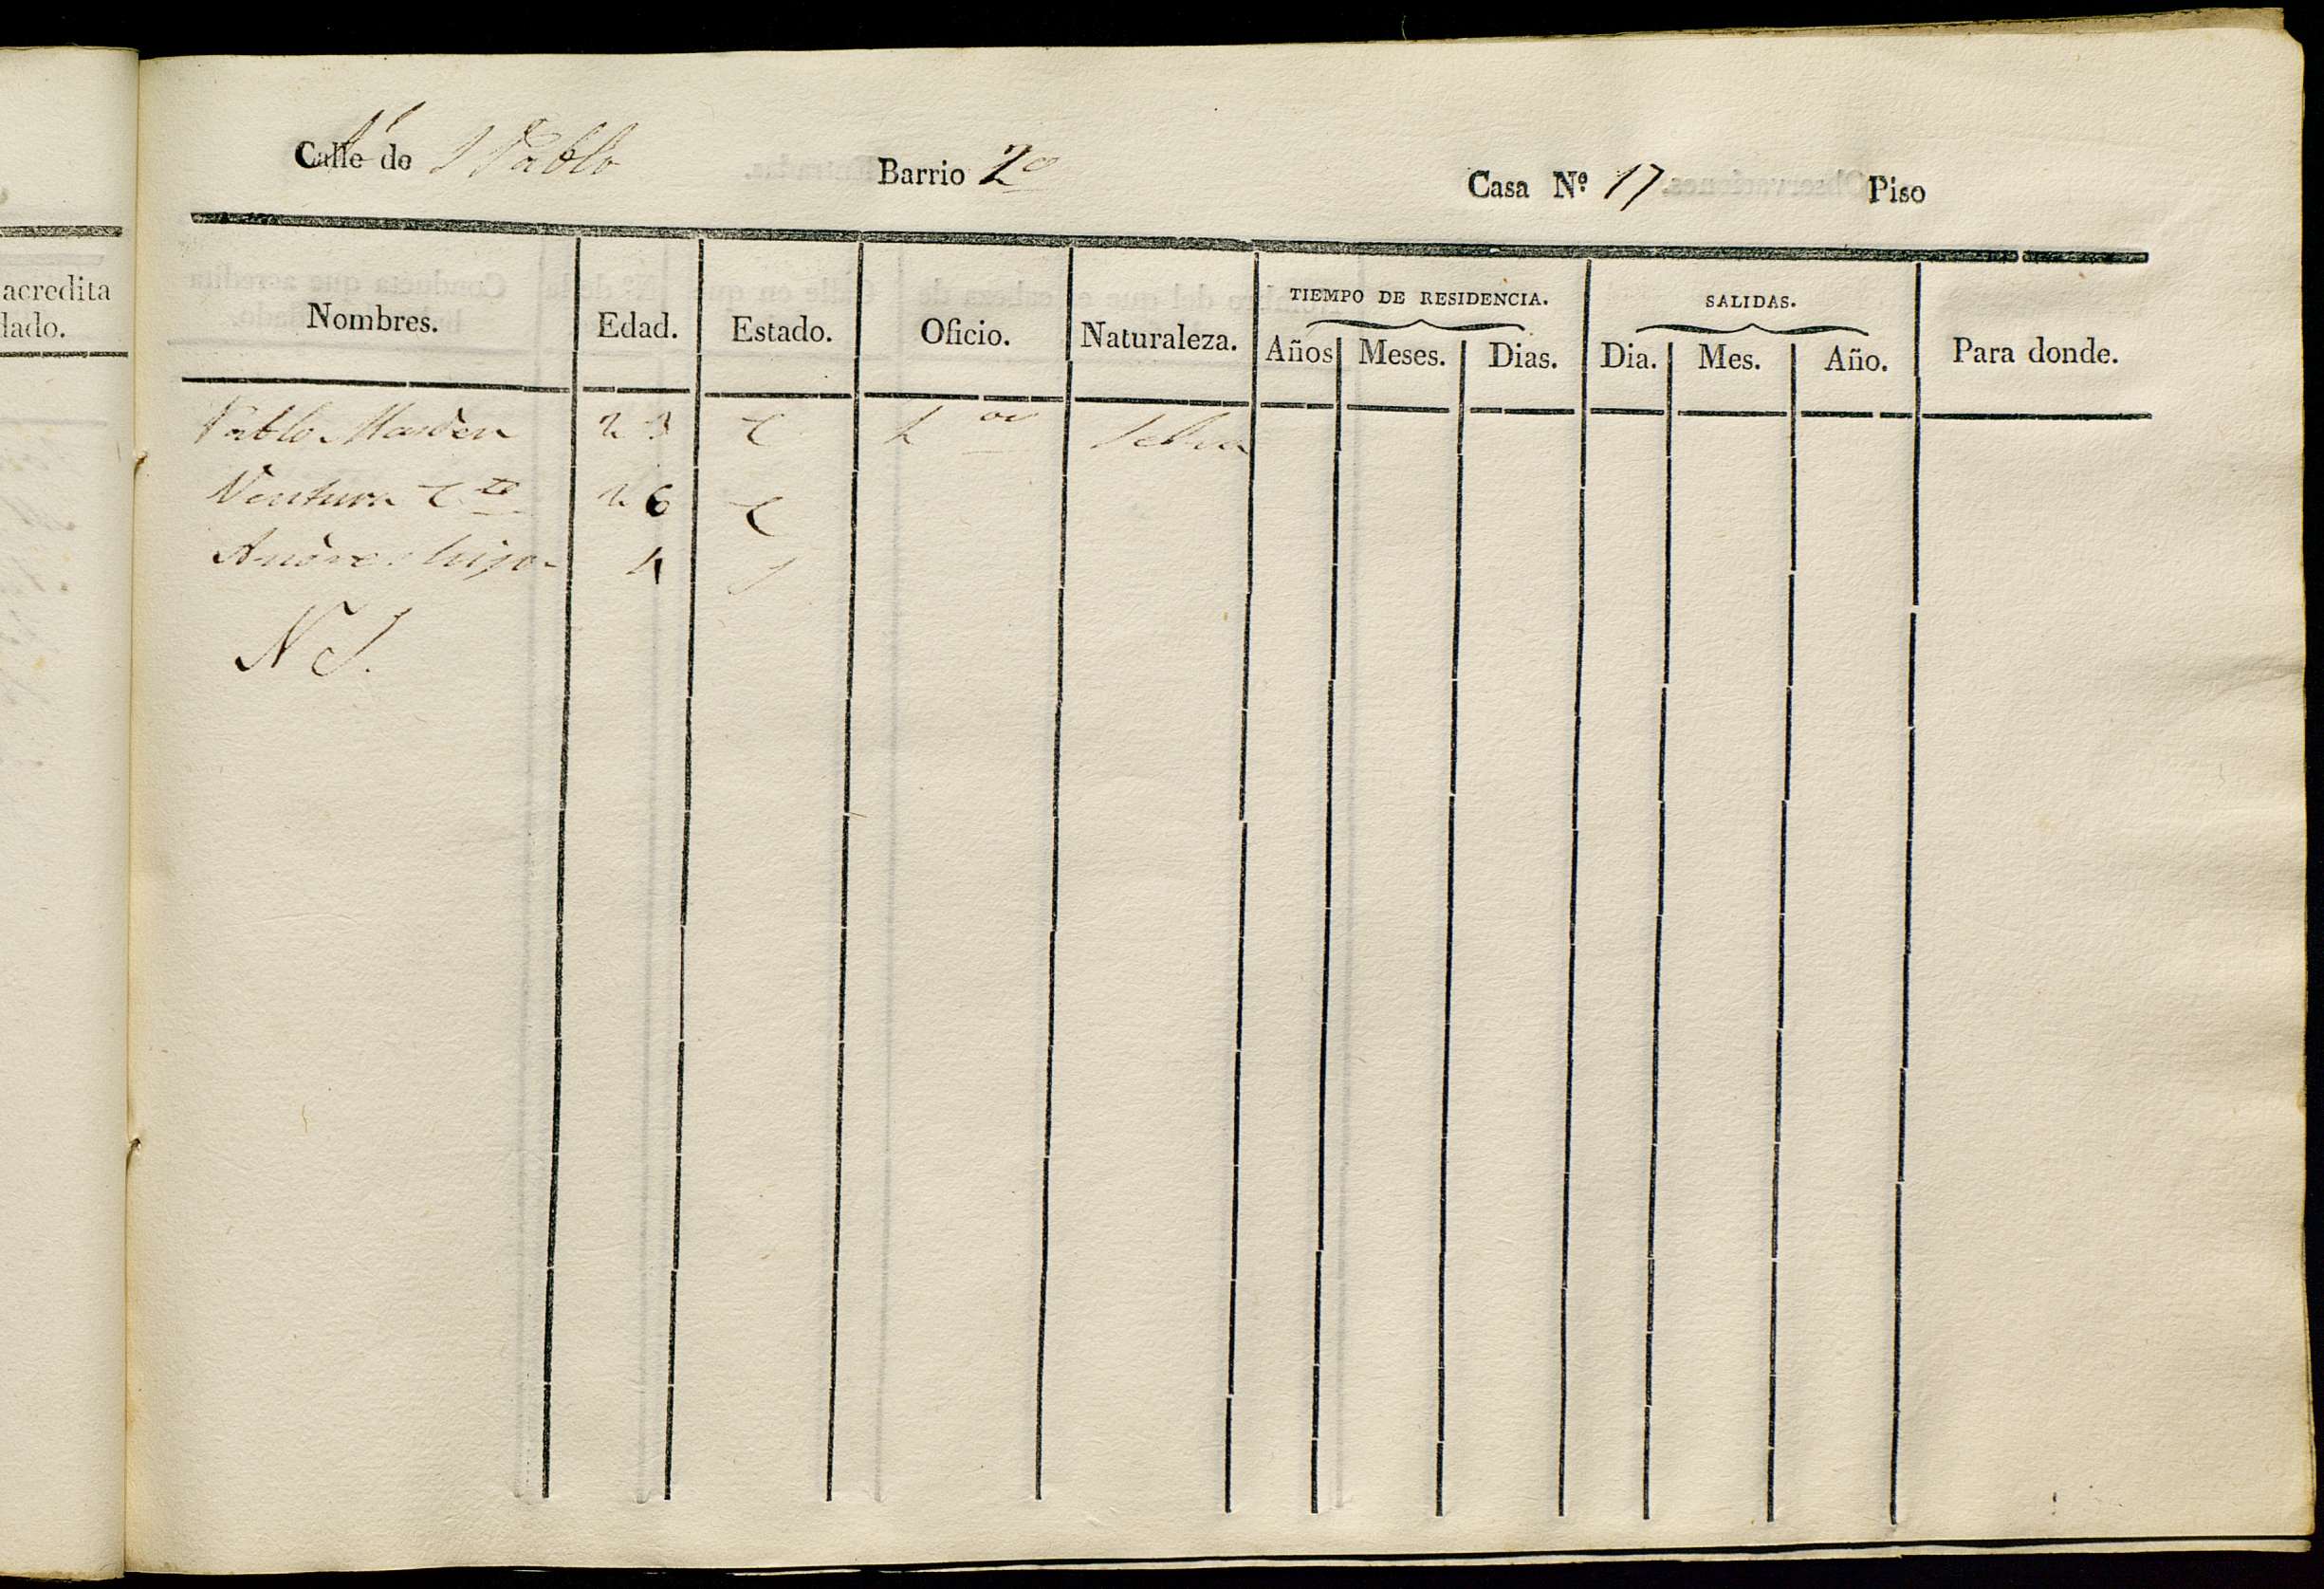 acredita
dado.
Calle de S Pablo Barrio 2º Casa Nº 17 Piso
TIEMPO DE RESIDENCIA. SALIDAS.
Nombres. Edad. Estado. Oficio. Naturaleza. Años Meses. Dias. Dia. Mes. Año. Para donde.
Pablo 23 C
Ventura 26 C
Andres hijo 4 S
N S.